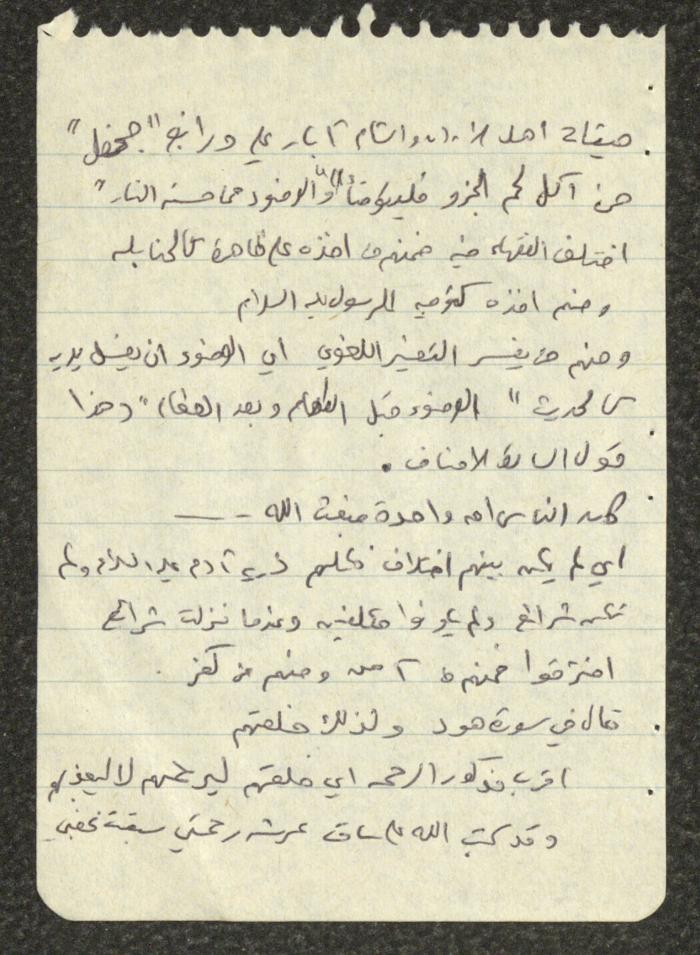 ميقات اهل الاردن والشام آبار علي ورابغ "جحفل"
من أكل لحم الجزور فليتوضأ "و" الوضوء مما مسته النار"
اختلف الفقهاء فيه فمنهم من اخذه على ظاهره كالحنابله
ومنهم اخذه كخصوصية للرسول عليه السلام
ومنهم من يفسر التفسير اللغوي اي الوضوء ان يغسل يديه
كالحديث " الوضوء قبل الطعام وبعد الطعام" وهذا
قول السادة الاحناف .
كان الناس امه واحدة فبعث الله ــ ــ
اي لم يكن بينهم اختلاف فكلهم ذرية آدم عليه السلام ولم
تكن شرائع ولم يكونوا مكلفين وعندما نزلت شرائع
افترقوا فمنهم من آمن ومنهم من كفر
قال في سورة هود ولذلك خلقتهم
اقرب مذكور الرحمه اي خلقتهم ليرحمهم لا ليعذبهم
وقد كتب الله على ساق عرشه رحمتي سبقت غضبي